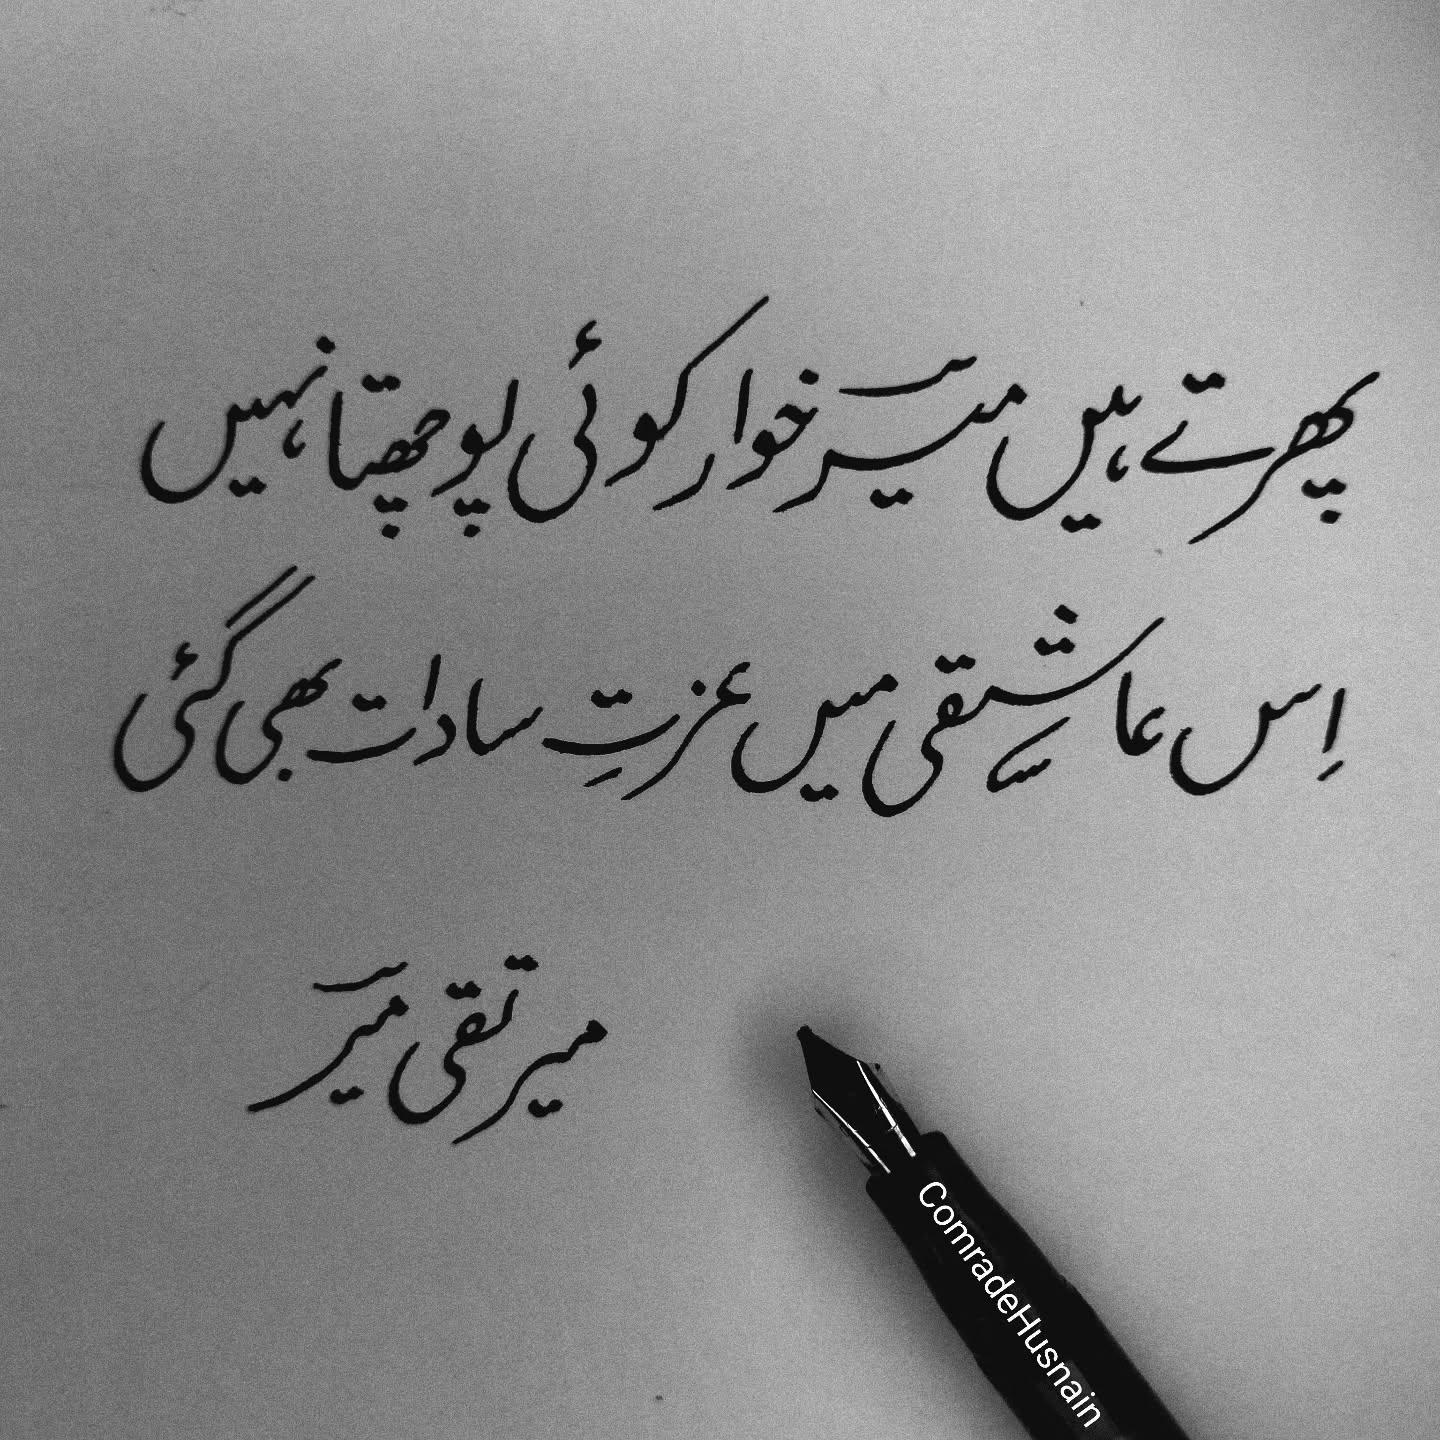 پھرتے ہیں میرؔ خوار کوئی پوچھتا نہیں
اِس عاشقی میں عزتِ سادات بھی گئی
میر تقی میرؔ
ComradeHusnain